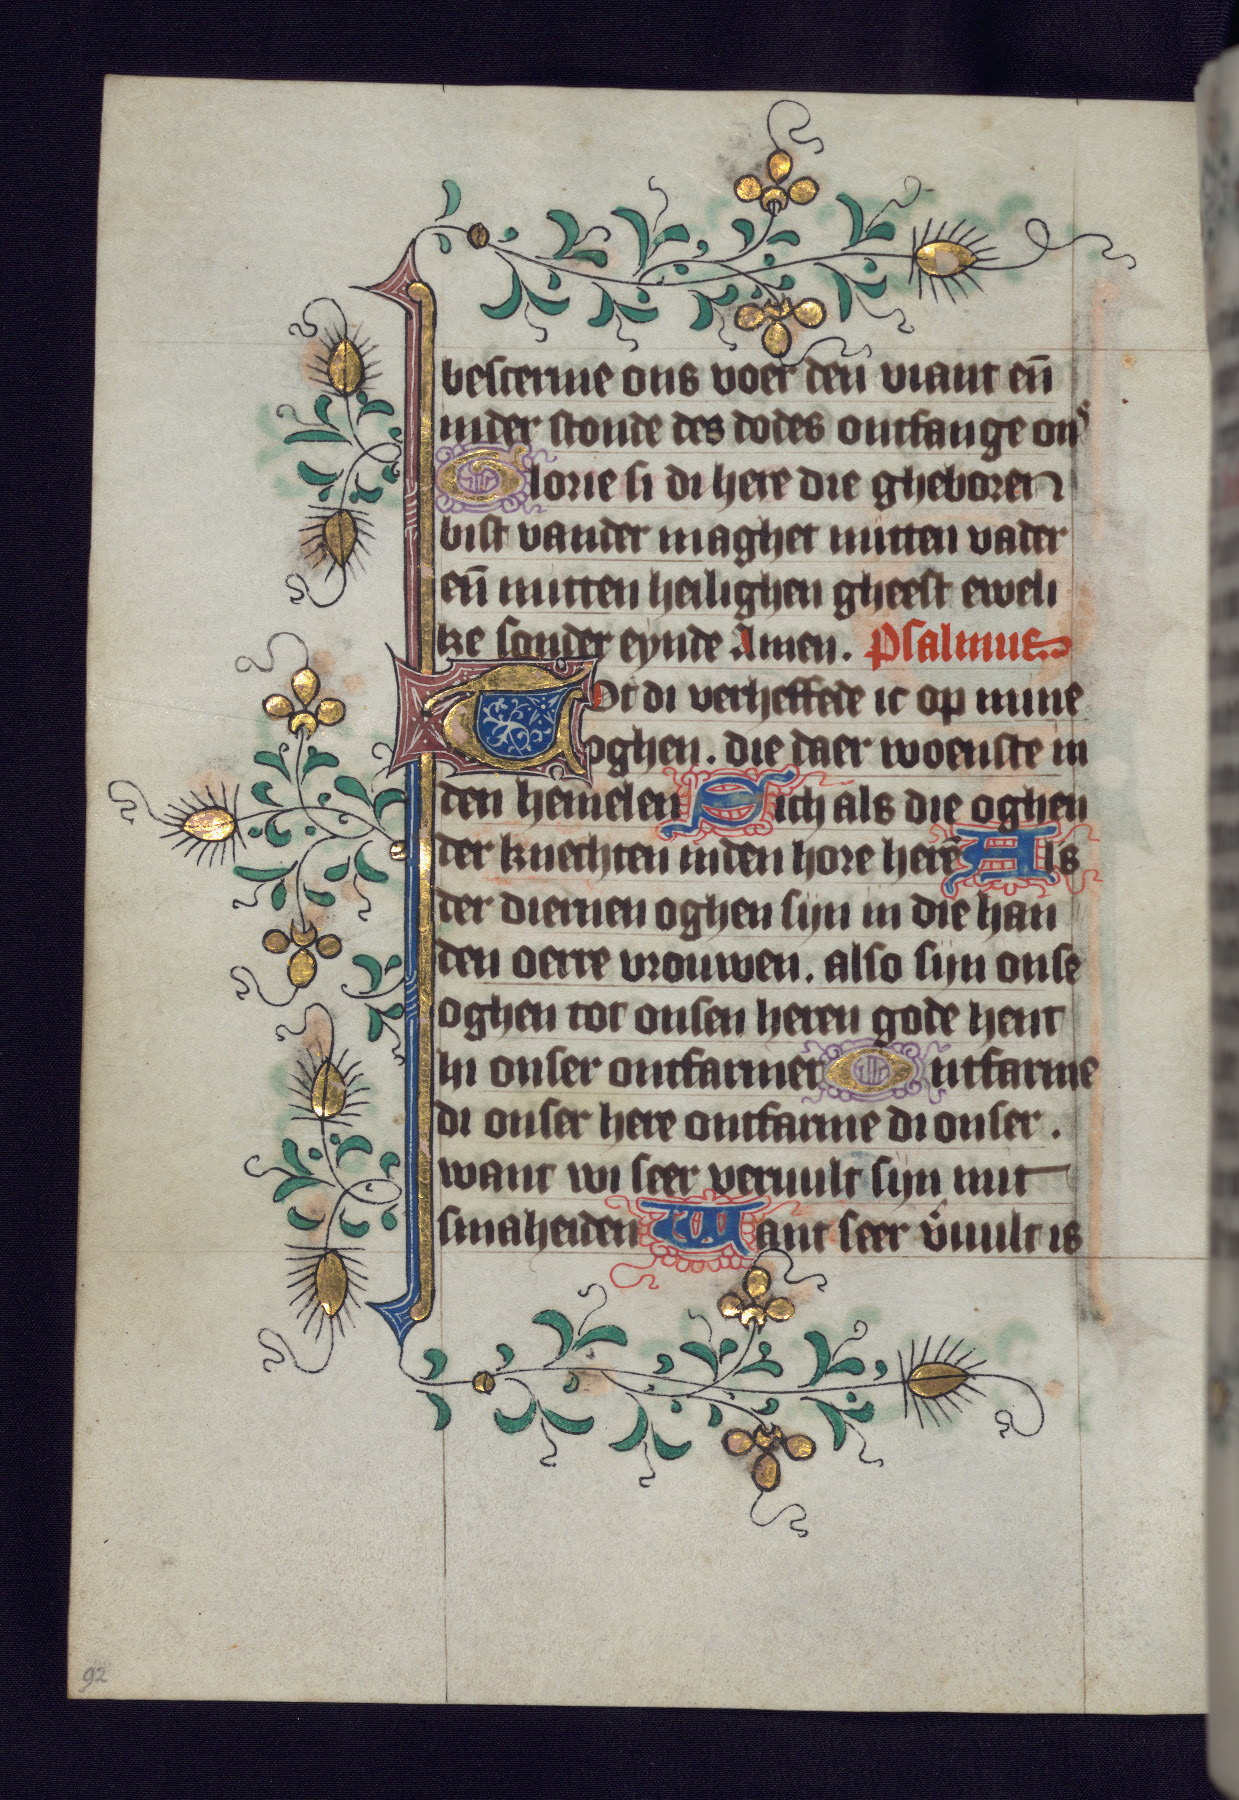 bescerme ons voer den viant en̄
inder stonde des dodes ontfange ons
Glorie si di here die gheboren
bist vander maghet mitten vader
en̄ mitten heilighen gheest eweli
ke sonder eynde Amen. Psalmus
Tot di verheffede ic op mine
oghen. die daer woenste in
den hemelen Sich als die oghen
der knechten inden hore herē Als
der diernen oghen sijn in die han
den oerre vrouwen. also sijn onse
oghen tot onsen heren gode hent
hi onser ontfarmet Ontfarme
di onser here ontfarme di onser.
want wi seer veruult sijn mit
smaheiden Want seer v̄uult is
92